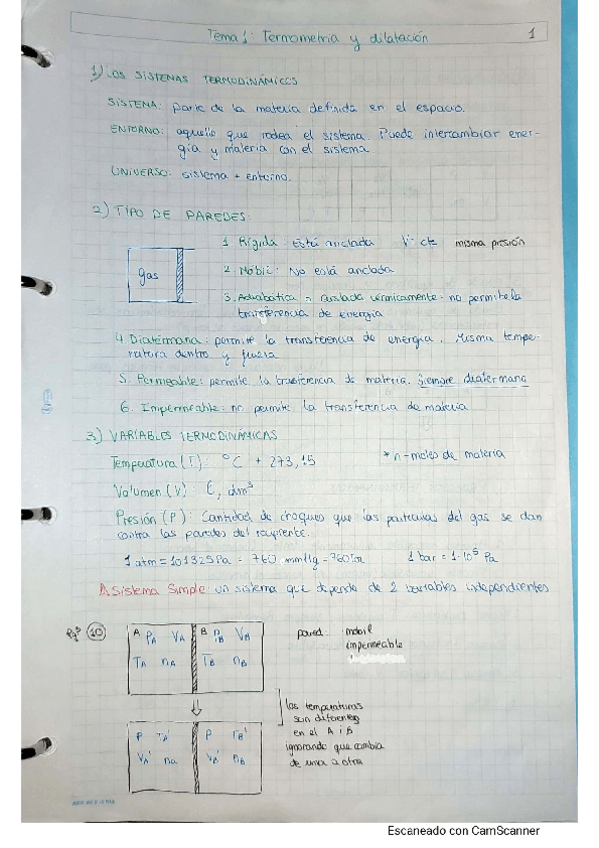 Tema 1: Termometria y dilatación 1
1) LOS SISTEMAS TERMODINÁMICOS
SISTEMA: parte de la materia definida en el espacio.
ENTORNO: aquello que rodea el sistema. Puede intercambiar ener-
gía y materia con el sistema
UNIVERSO: sistema + entorno.
2) TIPO DE PAREDES:
gas
1. Rígida: Está anclada V: cte misma presión
2. Móbil: No está anclada
3. Adiabática = aislada térmicamente: no permite la
transferencia de energía
4. Diatérmana: permite la transferencia de energía. Misma tempe-
ratura dentro y fuera
5. Permeable: permite la transferencia de materia. Siempre diatermana
6. Impermeable: no permite la transferencia de materia
3) VARIABLES TERMODINÁMICAS
Temperatura (T): °C + 273,15 * n-moles de materia
Volumen (V): ℓ, dm³
Presión (P): Cantidad de choques que las partículas del gas se dan
contra las paredes del recipiente.
1 atm = 101325 Pa = 760 mmHg = 760 1 bar = 1·10⁵ Pa
Sistema Simple: un sistema que depende de 2 variables independientes
10
A PA VA B PB VB
TA nA TB nB
pared: mobil
impermeable
las temperaturas
son diferentes
en el A i B
ignorando que cambia
de una a otra
P TA' P TB'
VA' nA VB' nB
Escaneado con CamScanner